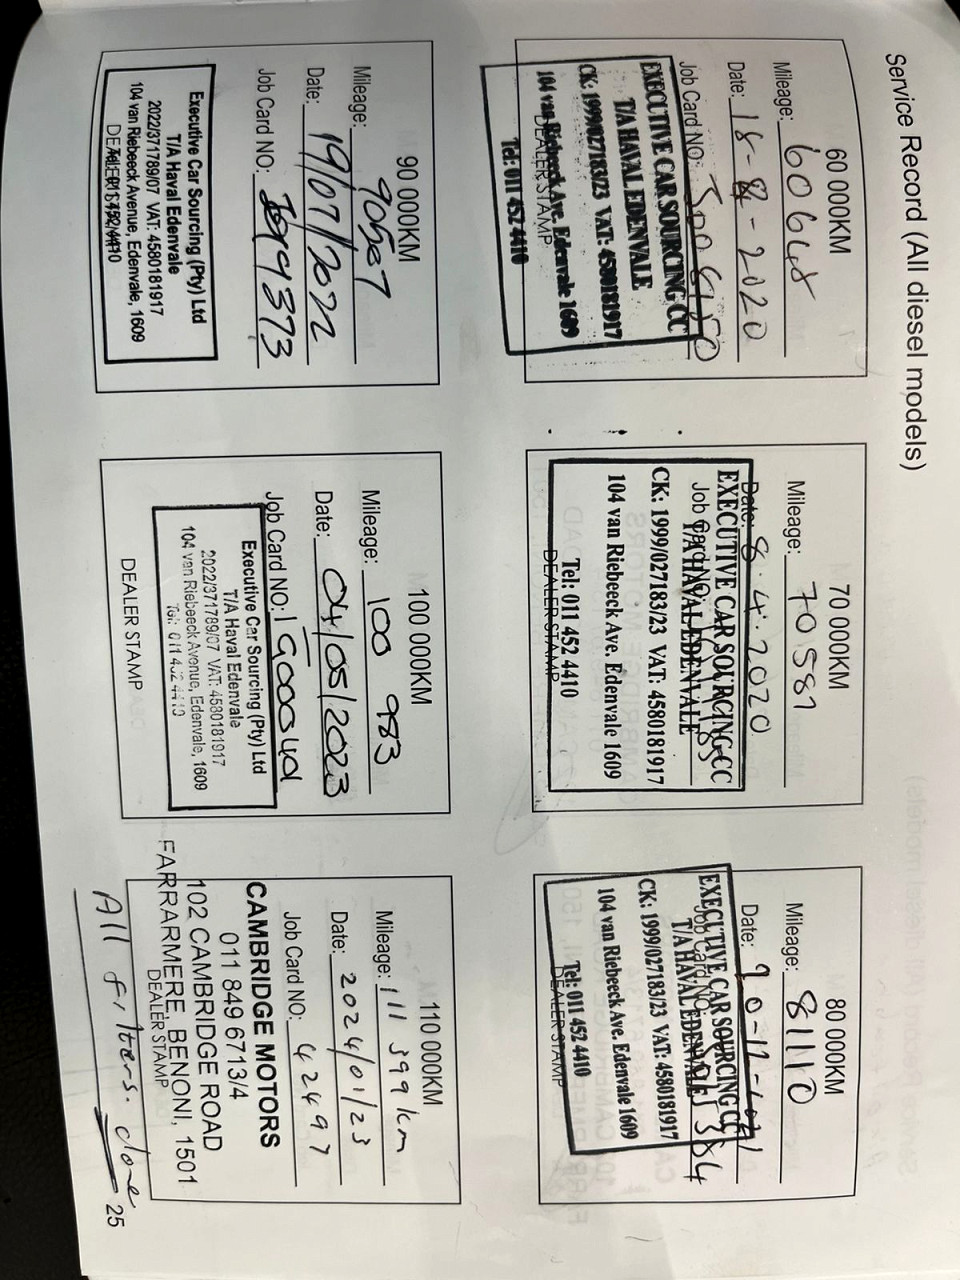 Service Record (All diesel models)
60 000KM
Mileage: 60648
Date: 18-8-2020
Job Card NO:
EXECUTIVE CAR SOURCING CC
T/A HAVAL EDENVALE
CK: 1999/027183/23 VAT: 4580181917
104 van Riebeeck Ave. Edenvale 1609
DEALER STAMP
Tel: 011 452 4410
70 000KM
Mileage: 70587
Date: 8.4.2020
EXECUTIVE CAR SOURCING CC
Job Card NO:
T/A HAVAL EDENVALE
CK: 1999/027183/23 VAT: 4580181917
104 van Riebeeck Ave. Edenvale 1609
Tel: 011 452 4410
DEALER STAMP
80 000KM
Mileage: 81110
Date:
EXECUTIVE CAR SOURCING CC
Job Card NO:
T/A HAVAL EDENVALE
CK: 1999/027183/23 VAT: 4580181917
104 van Riebeeck Ave. Edenvale 1609
Tel: 011 452 4410
DEALER STAMP
90 000KM
Mileage: 90587
Date: 19/07/2022
Job Card NO:
Executive Car Sourcing (Pty) Ltd
T/A Haval Edenvale
2022/371789/07 VAT: 4580181917
104 van Riebeeck Avenue, Edenvale, 1609
DEALER STAMP
100 000KM
Mileage: 100 983
Date: 04/05/2023
Job Card NO:
Executive Car Sourcing (Pty) Ltd
T/A Haval Edenvale
2022/371789/07 VAT: 4580181917
104 van Riebeeck Avenue, Edenvale, 1609
Tel: 011 452 4410
DEALER STAMP
110 000KM
Mileage: 111 399 km
Date: 2024/01/23
Job Card NO: 42497
CAMBRIDGE MOTORS
011 849 6713/4
102 CAMBRIDGE ROAD
FARRARMERE, BENONI, 1501
DEALER STAMP
All filters. done
25